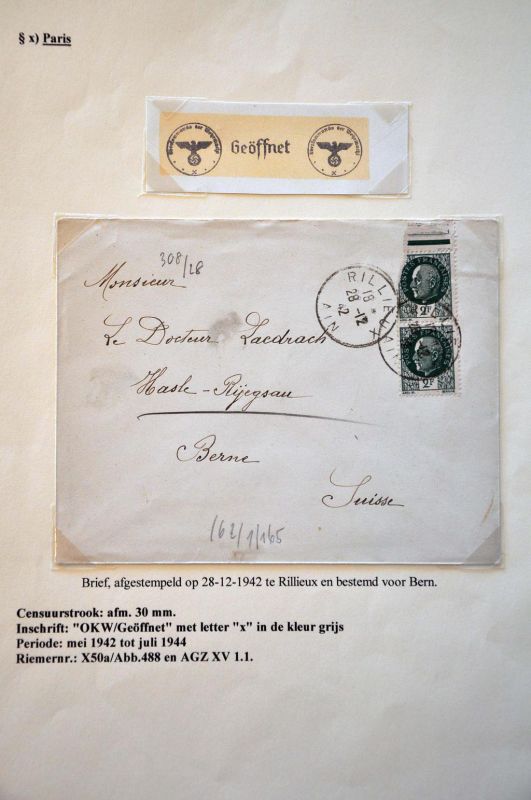 § x) Paris
Oberkommando der Wehrmacht
x
Geöffnet
Oberkommando der Wehrmacht
x
308/28
Monsieur
Le Docteur Laedrach
Hasle-Rüegsau
Berne
Suisse
162/1/165
RILLIEUX
18 *
28 -12
42
AIN
2F
2F
Brief, afgestempeld op 28-12-1942 te Rillieux en bestemd voor Bern.
Censuurstrook: afm. 30 mm.
Inschrift: "OKW/Geöffnet" met letter "x" in de kleur grijs
Periode: mei 1942 tot juli 1944
Riemernr.: X50a/Abb.488 en AGZ XV 1.1.